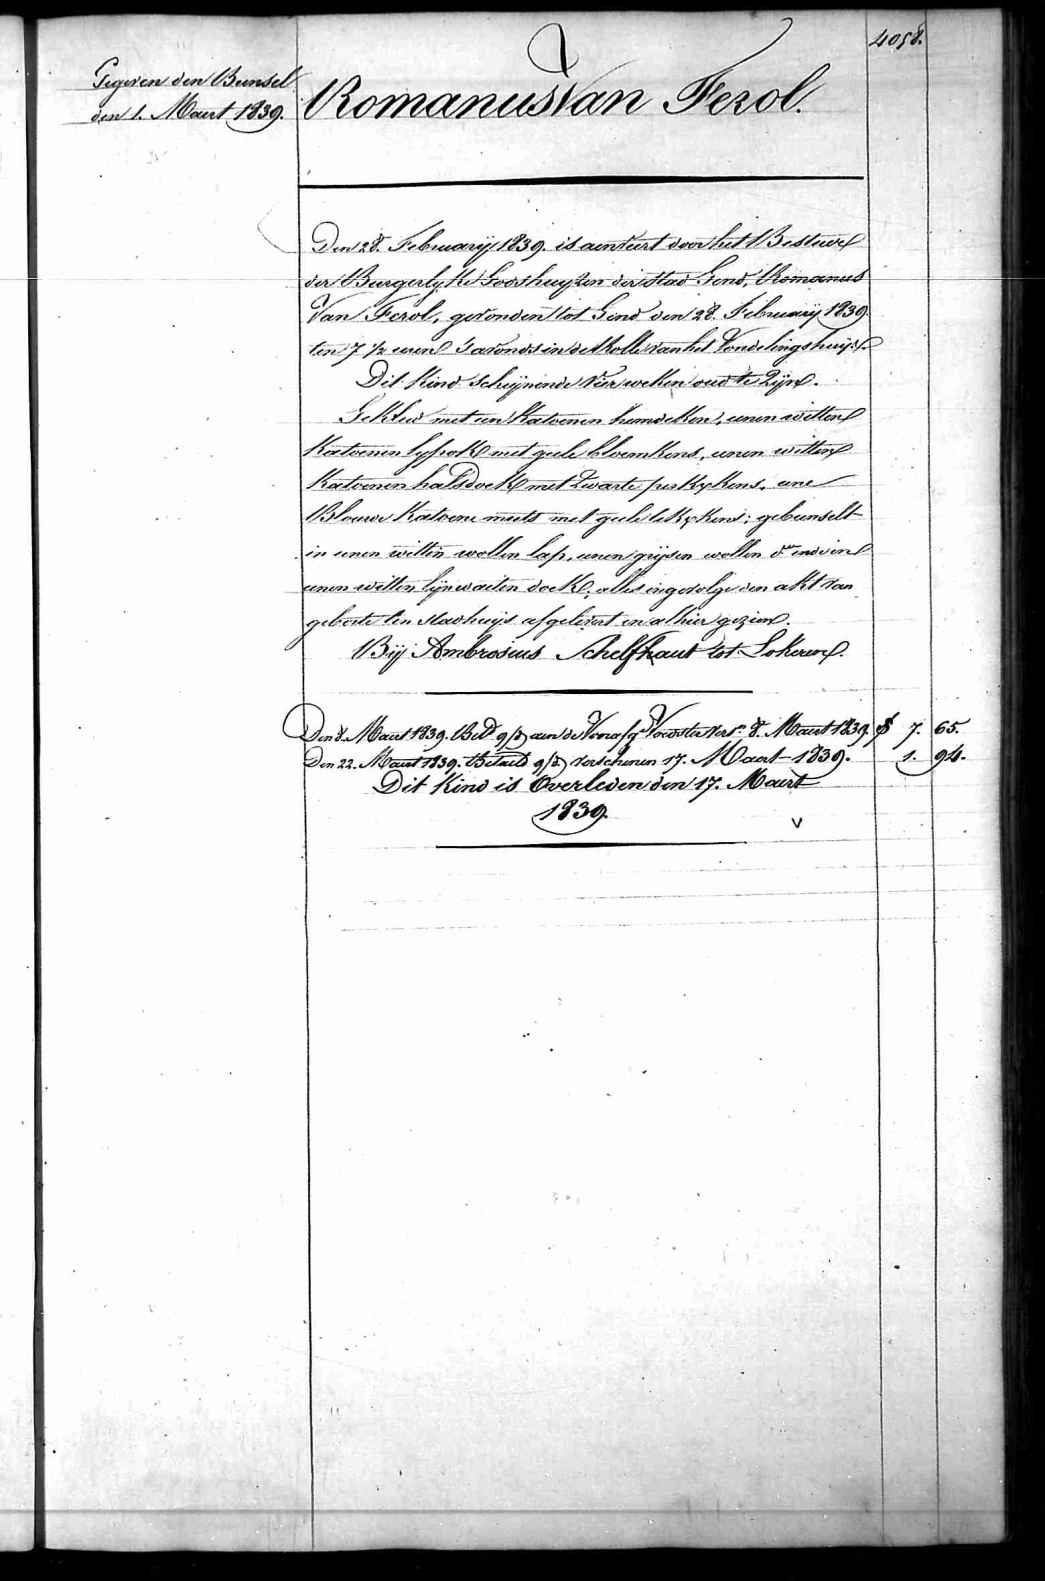 4058.
Gegeven den Bunsel
den 1. Maert 1839.
Romanus Van Ferol.
Den 28. Februarij 1839. is aenveirt door het Bestuer
der Burgerlyke Godshuyzen der stad Gend, Romanus
Van Ferol, gevonden tot Gend den 28. Februarij 1839
ten 7 1/2 uren S'avonds in de Rolle van het Vondelingshuijs.
Dit Kind Schijnende vier weken oud te Zijn.
Gekleed met een Katoenen hemdeken, eenen witten
Katoenen lyfrok met geele bloemkens, eenen witten
Katoenen halsdoek met Zwarte perkxkens, eene
Blouwe Katoene muts met geele lekxkens; gebunselt
in eenen witten wollen lap, eenen grijsen wollen do. en in
eenen witten lijnwaeten doek, alles ingevolge den akt van
geboorte ten Stadhuijs afgelevert en alhier gezien.
Bij Ambrosius Schelfhaut tot Lokeren.
Den 8. Maert 1839. Beld. g/d aen de Voorsz. Voedster vers. 8. Maert 1839. 7. 65.
Den 22. Maert 1839. Betaeld g/d verschenen 17. Maert 1839. 1. 94.
Dit Kind is Overleden den 17. Maert
1839.